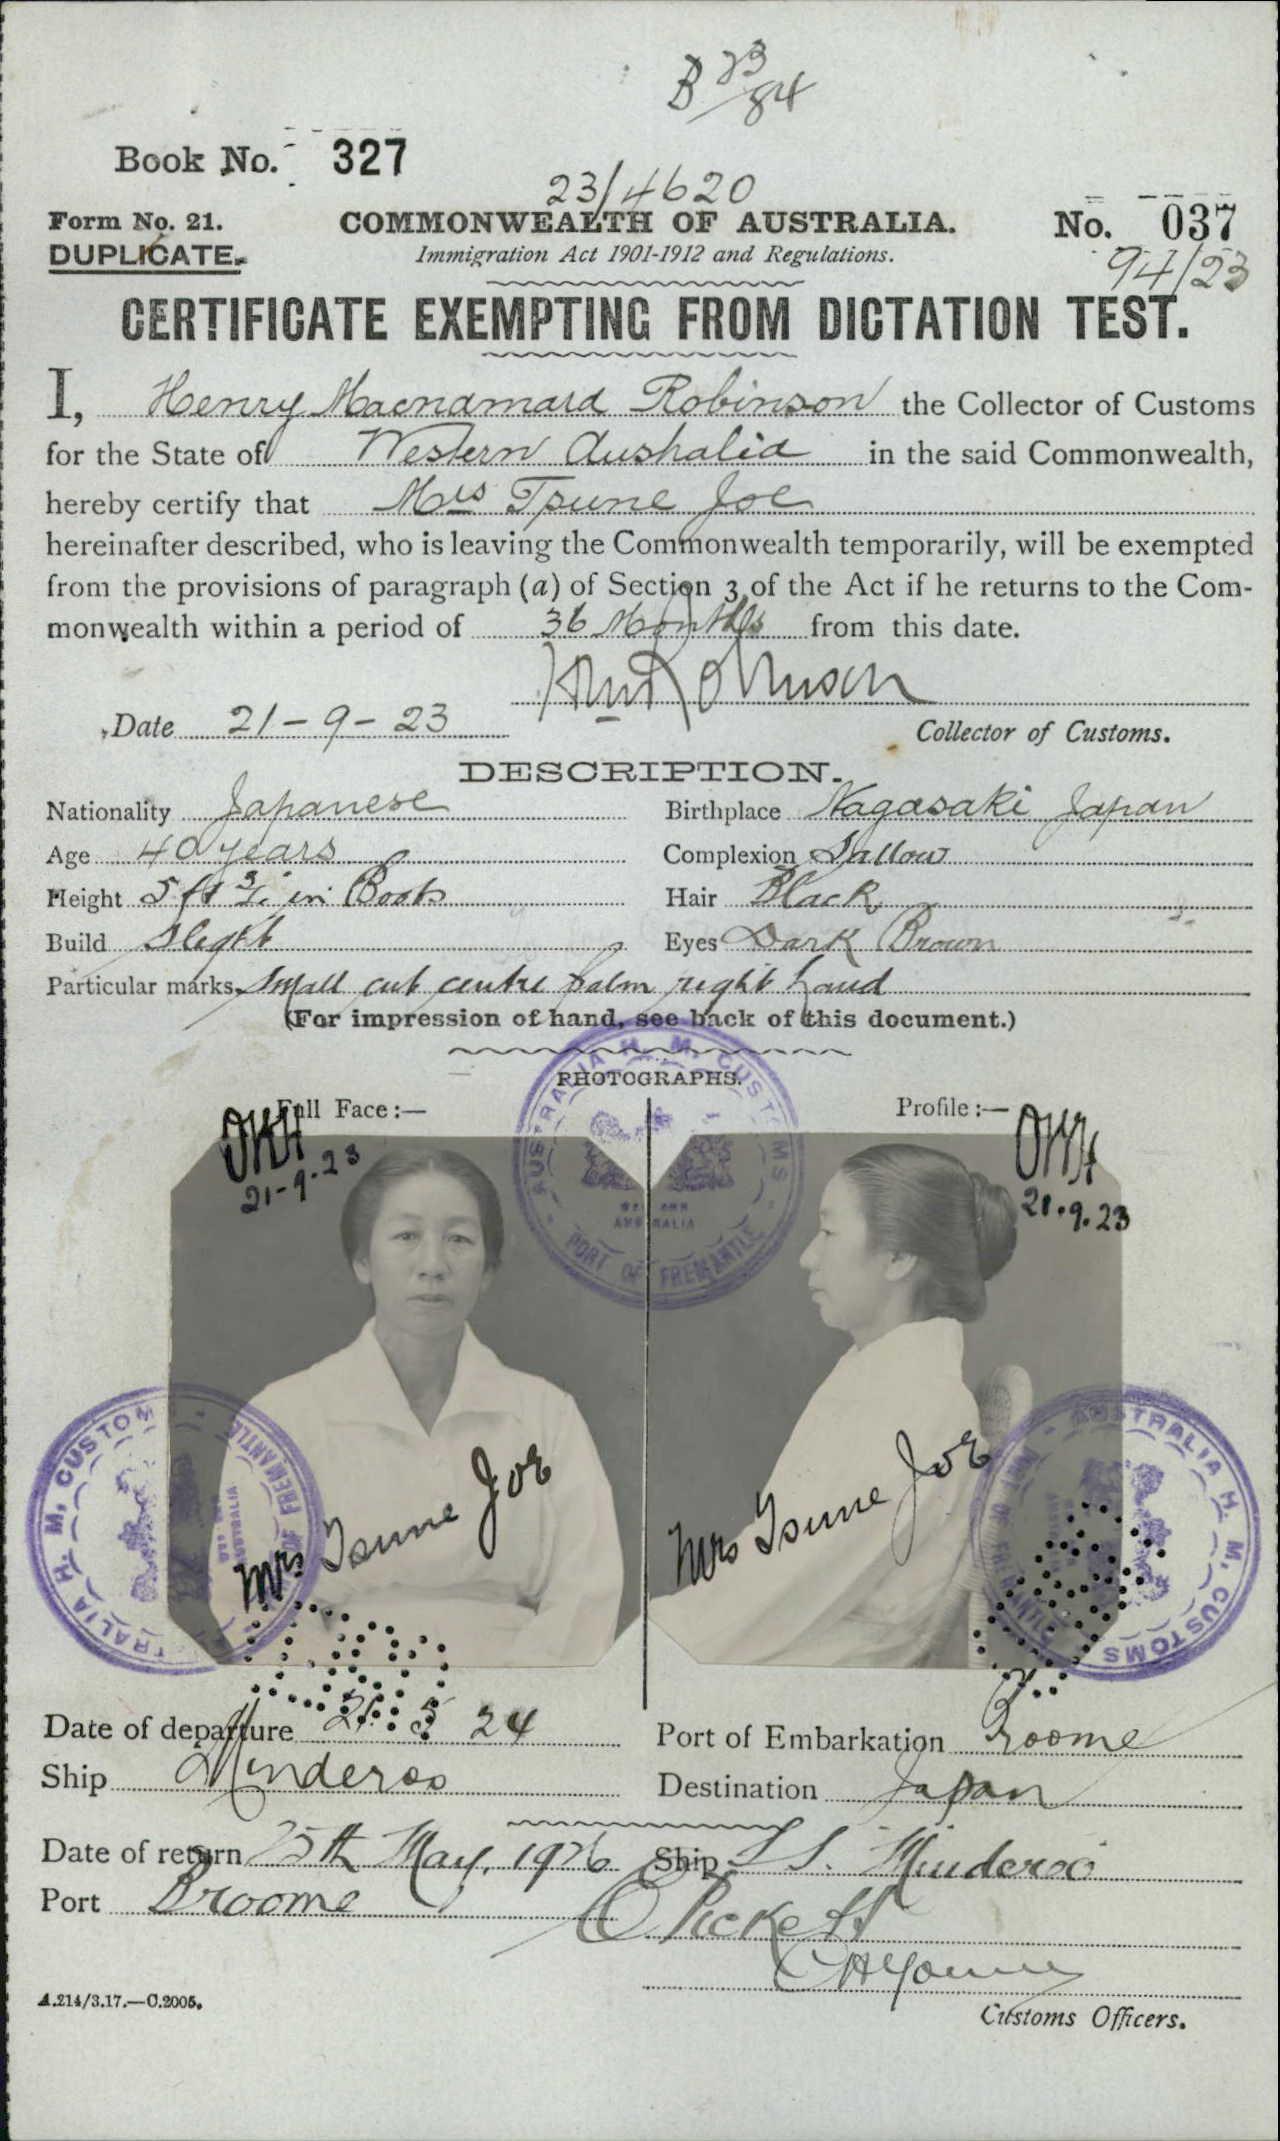 B 23/84
Book No. 327
23/4620
Form No. 21. COMMONWEALTH OF AUSTRALIA. No. 037
DUPLICATE. Immigration Act 1901-1912 and Regulations. 94/23
CERTIFICATE EXEMPTING FROM DICTATION TEST.
I, Henry Macnamara Robinson the Collector of Customs
for the State of Western Australia in the said Commonwealth,
hereby certify that Mrs Tsune Joe
hereinafter described, who is leaving the Commonwealth temporarily, will be exempted
from the provisions of paragraph (a) of Section 3 of the Act if he returns to the Com-
monwealth within a period of 36 Months from this date.
Robinson
Date 21-9-23 Collector of Customs.
DESCRIPTION.
Nationality Japanese Birthplace Nagasaki Japan
Age 40 years Complexion Sallow
Height 5 ft in Boots Hair Black
Build Slight Eyes Dark Brown
Particular marks Small cut centre palm right hand
(For impression of hand, see back of this document.)
PHOTOGRAPHS.
Full Face :— Profile :—
21-9-23 21.9.23
AUSTRALIA H. M. CUSTOMS
WESTERN AUSTRALIA
PORT OF FREMANTLE
Mrs Tsune Joe Mrs Tsune Joe
AUSTRALIA H. M. CUSTOMS PORT OF FREMANTLE
AUSTRALIA H. M. CUSTOMS PORT OF FREMANTLE
Date of departure 21 5 24 Port of Embarkation Broome
Ship Minderoo Destination Japan
Date of return 25th May, 1926 Ship S S. Minderoo
Port Broome Pickett
A.214/3.17.—C.2005.
Customs Officers.